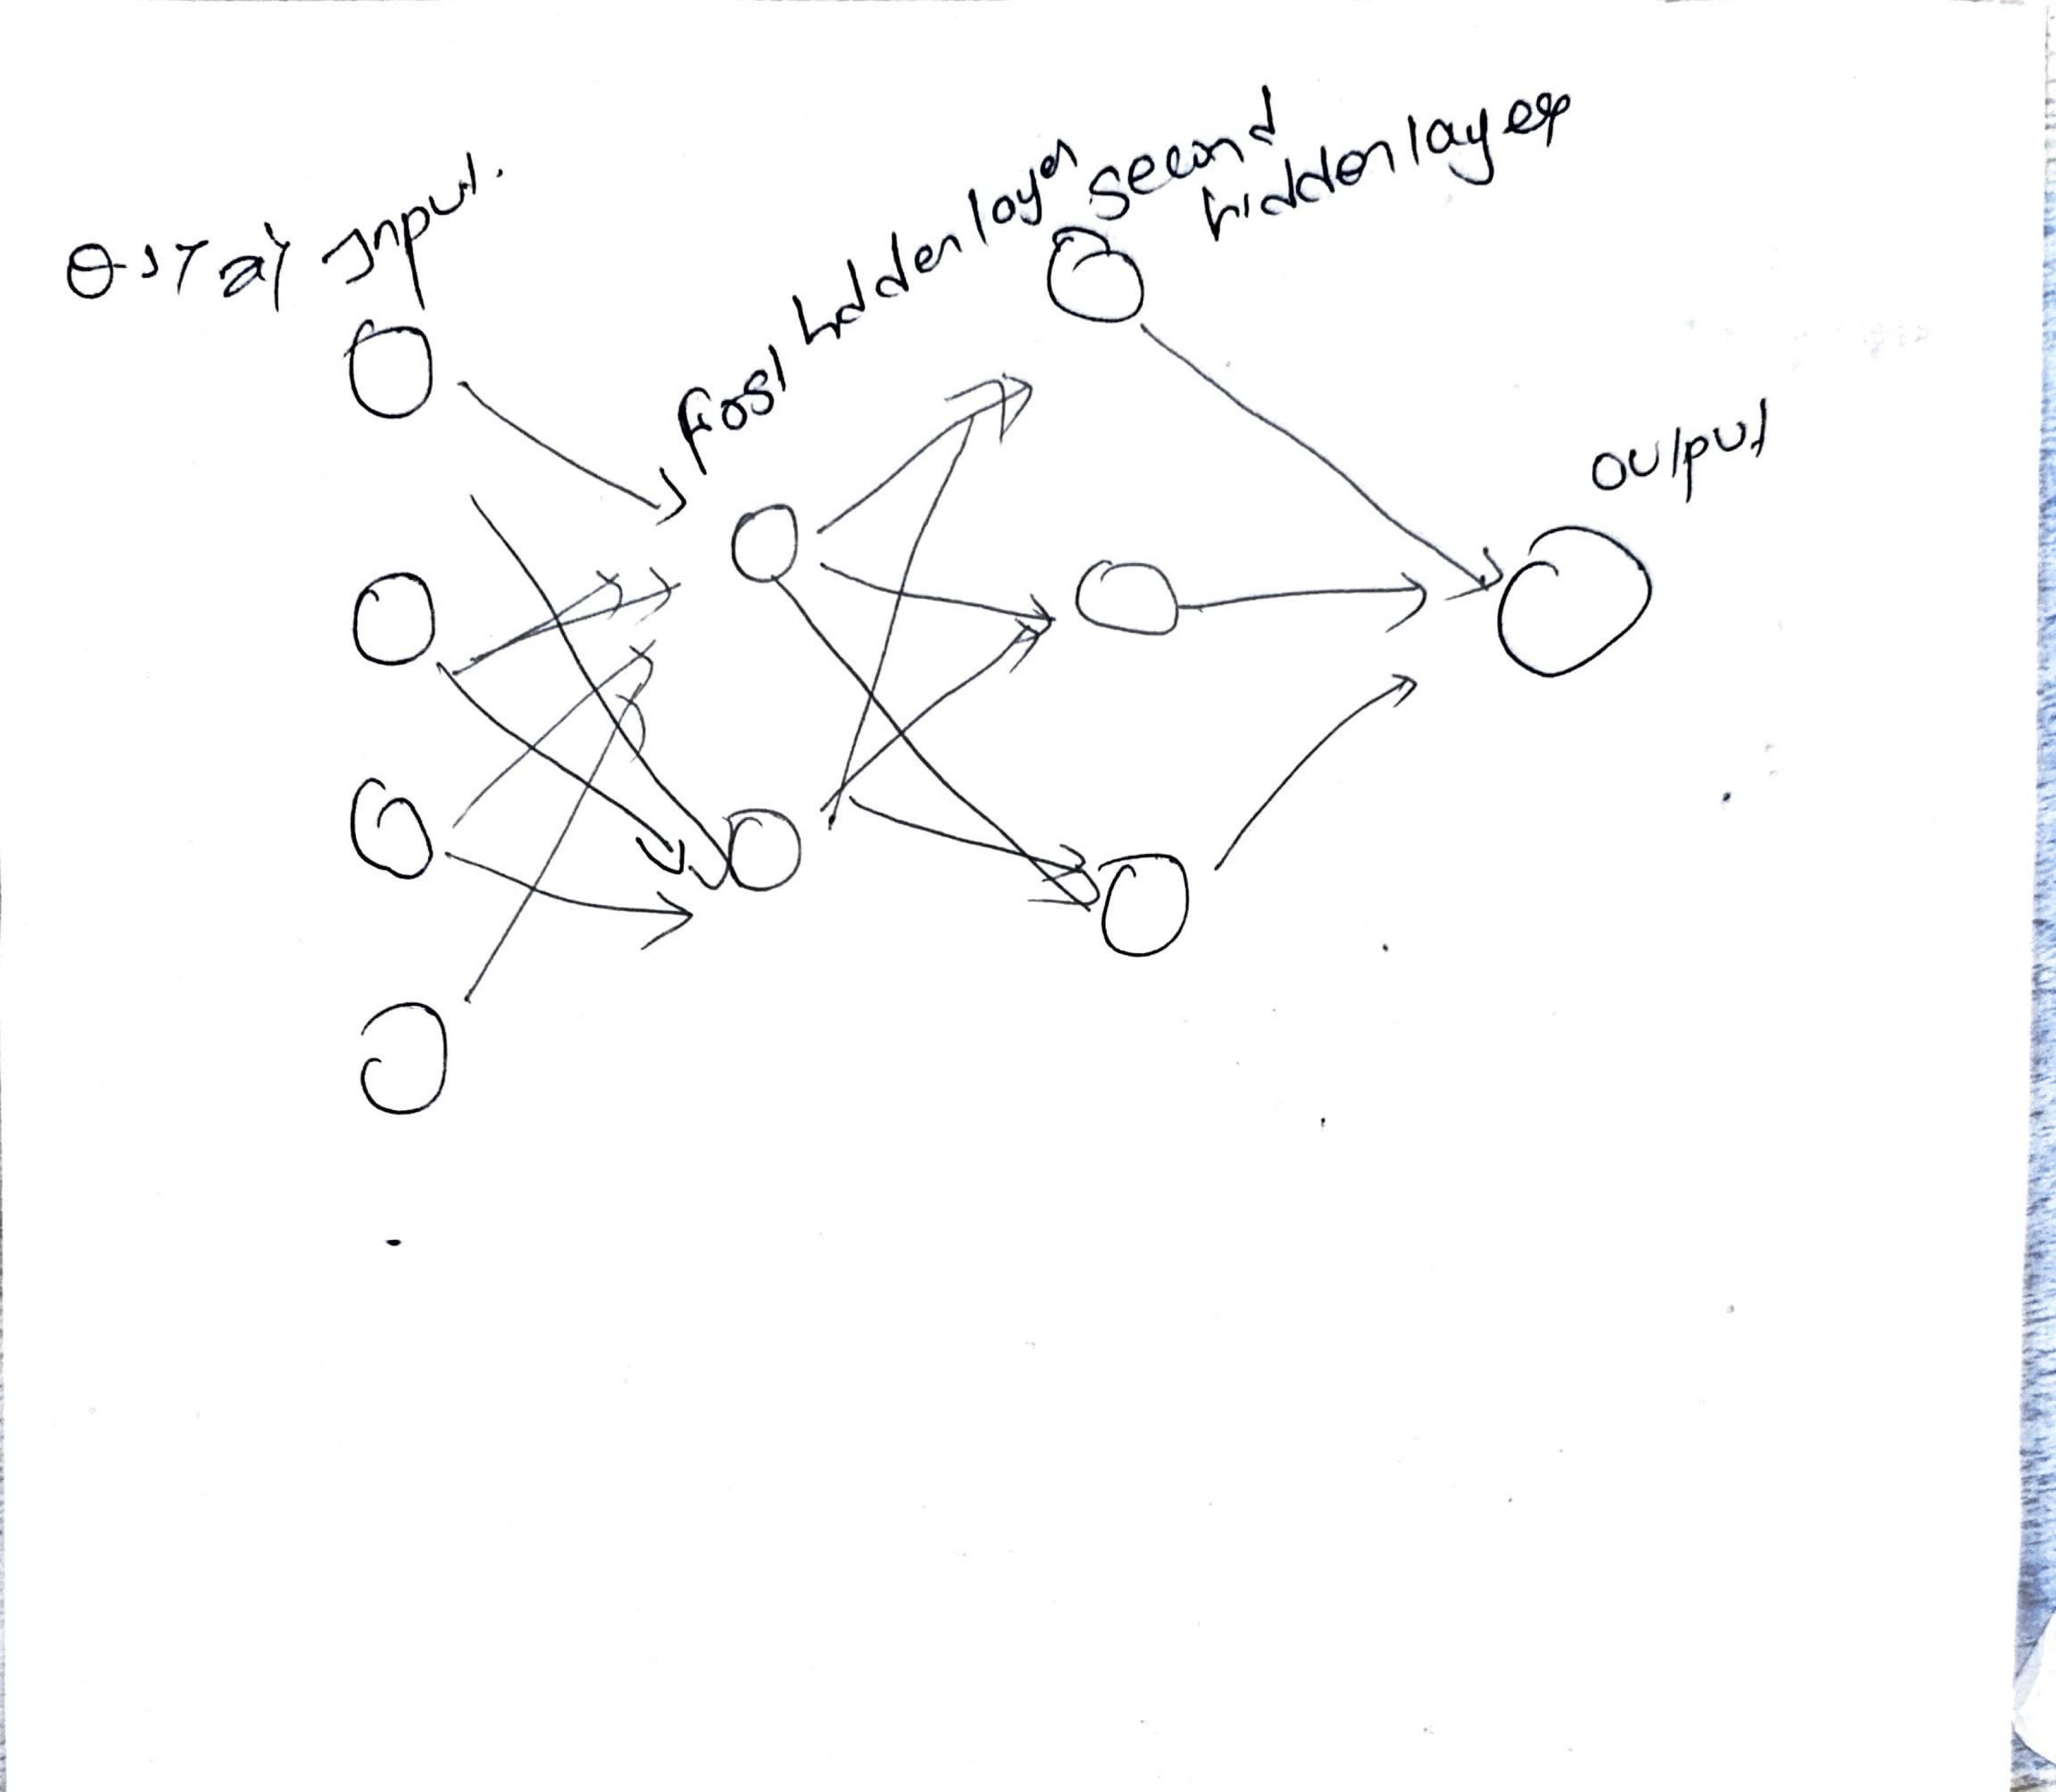 Q-17 a) Input.
first hidden layer
second
hidden layer
output